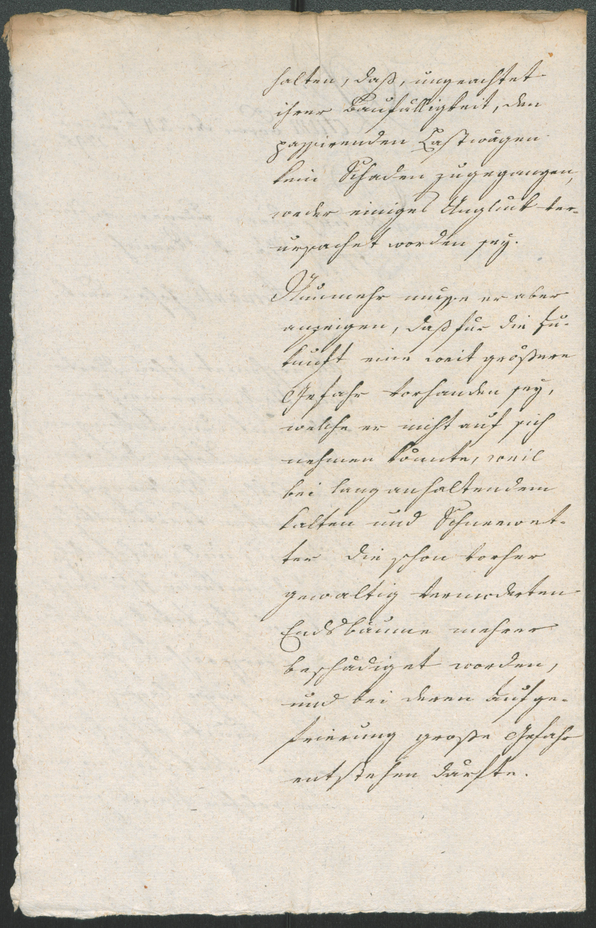 halten, daß, ungeachtet
ihrer Baufälligkeit, den
passirenden Lastwägen
kein Schaden zugegangen,
weder einiges Unglück ver-
ursachet worden sey.
Nunmehr müsse er aber
anzeigen, daß für die Zu-
kunft eine weit größere
Gefahr vorhanden sey,
welche er nicht auf sich
nehmen könnte, weil
bei lang anhaltendem
kalten und Schneewet-
ter die schon vorher
gewaltig vermoderten
Endsbäume mehrer
beschädiget worden,
und bei deren Aufge-
frierung große Gefahr
entstehen dürfte.